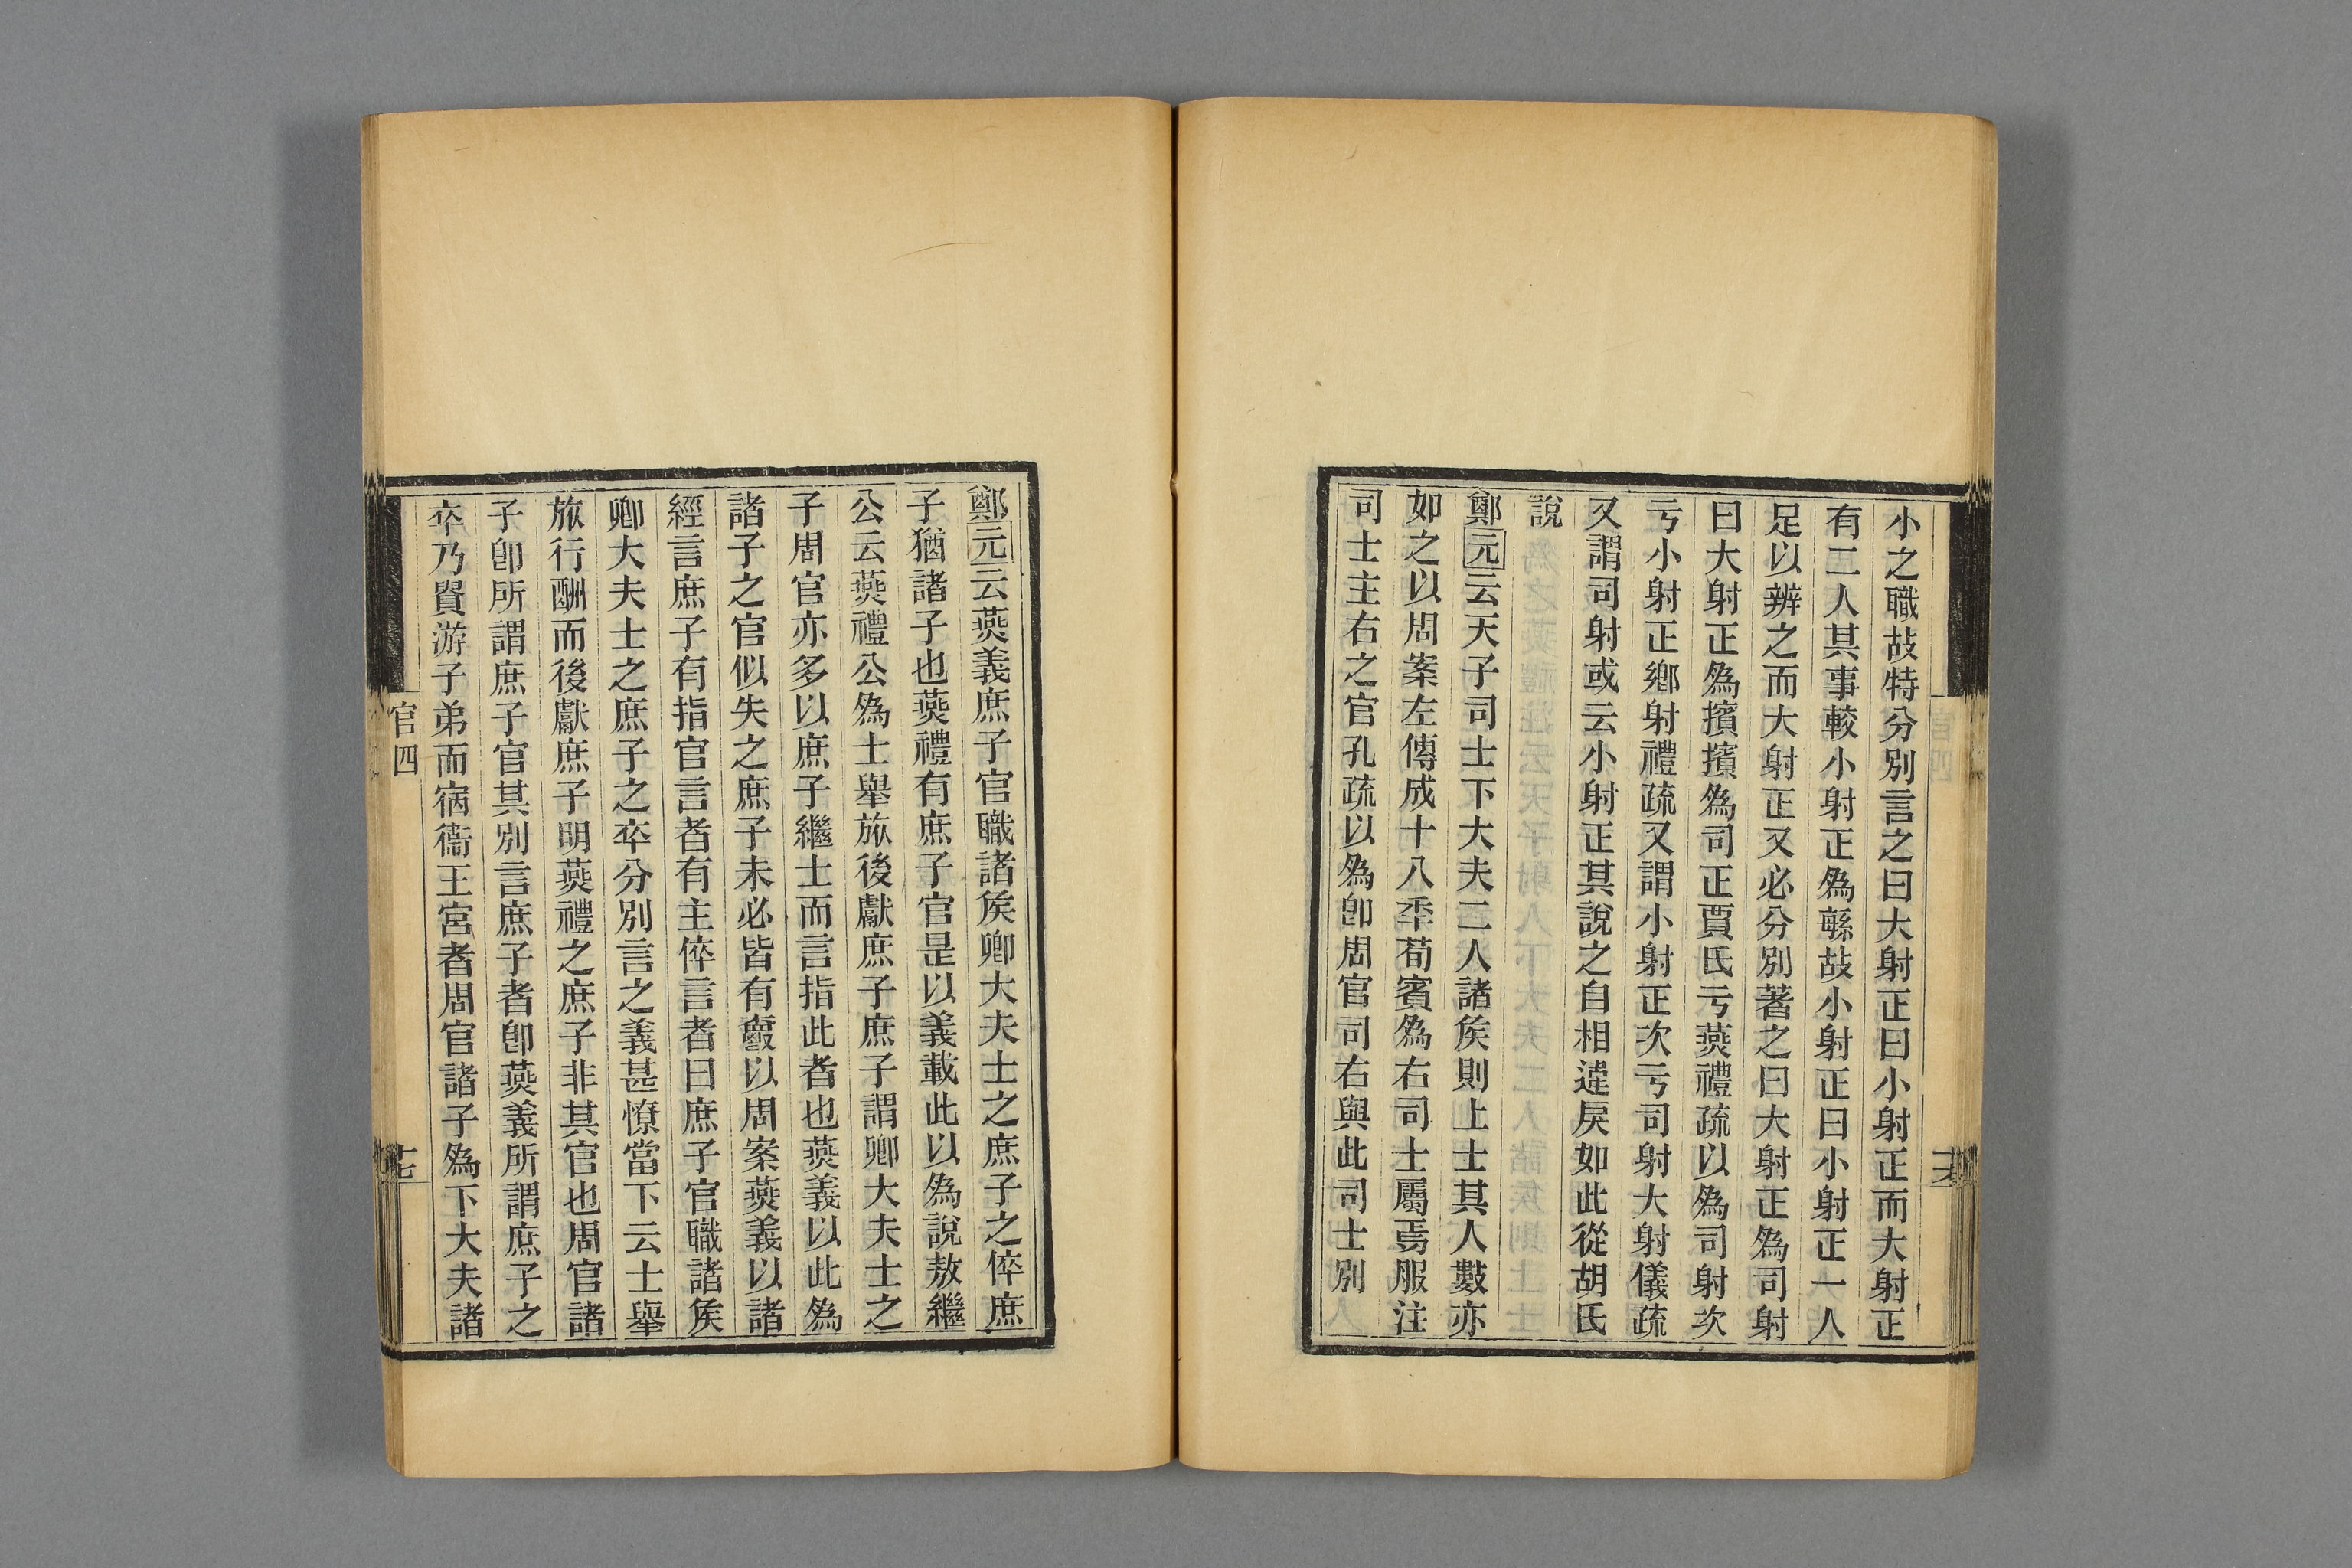 小之職故特分別言之曰大射正曰小射正而大射正
有二人其事較小射正爲緐故小射正曰小射正一人
足以辨之而大射正又必分別著之曰大射正爲司射
曰大射正爲擯擯爲司正賈氏亏燕禮疏以爲司射次
亏小射正鄉射禮疏又謂小射正次亏司射大射儀疏
又謂司射或云小射正其說之自相違戾如此從胡氏
說
鄭元云天子司士下大夫二人諸矦則上士其人數亦
如之以周案左傳成十八秊荀賓爲右司士屬焉服注
司士主右之官孔疏以爲卽周官司右與此司士別
鄭元云燕義庶子官職諸矦卿大夫士之庶子之倅庶
子猶諸子也燕禮有庶子官是以義載此以爲說敖繼
公云燕禮公爲士舉旅後獻庶子庶子謂卿大夫士之
子周官亦多以庶子繼士而言指此者也燕義以此爲
諸子之官似失之庶子未必皆有爵以周案燕義以諸
經言庶子有指官言者有主倅言者曰庶子官職諸矦
卿大夫士之庶子之卒分別言之義甚憭當下云士舉
旅行酬而後獻庶子明燕禮之庶子非其官也周官諸
子卽所謂庶子官其別言庶子者卽燕義所謂庶子之
卒乃賢游子弟而宿衞王宮者周官諸子爲下大夫諸
官四
十七